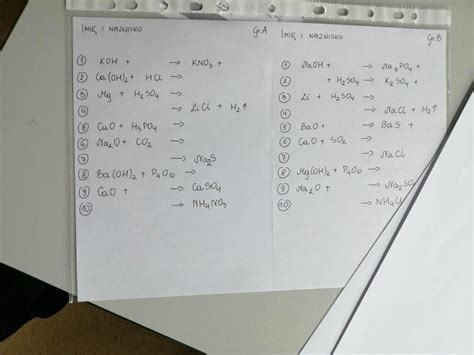 IMIĘ I NAZWISKO GR.A
① KOH + → KNO₃ +
② Ca(OH)₂ + HCl →
③ Mg + H₂SO₄ →
④ → LiCl + H₂↑
⑤ CuO + H₃PO₄ →
⑥ Na₂O + CO₂ →
⑦ → Na₂S
⑧ Ba(OH)₂ + P₄O₁₀ →
⑨ CaO + → CaSO₄
⑩ → NH₄NO₃
IMIĘ I NAZWISKO GR B
① NaOH + → Na₃PO₄ +
② + H₂SO₄ → K₂SO₄ +
③ Li + H₂SO₄ →
④ → NaCl + H₂↑
⑤ BaO + → BaS +
⑥ CaO + SO₂ →
⑦ → NaCl
⑧ Mg(OH)₂ + P₄O₁₀ →
⑨ Na₂O + → Na₂SO
⑩ → NH₄Cl